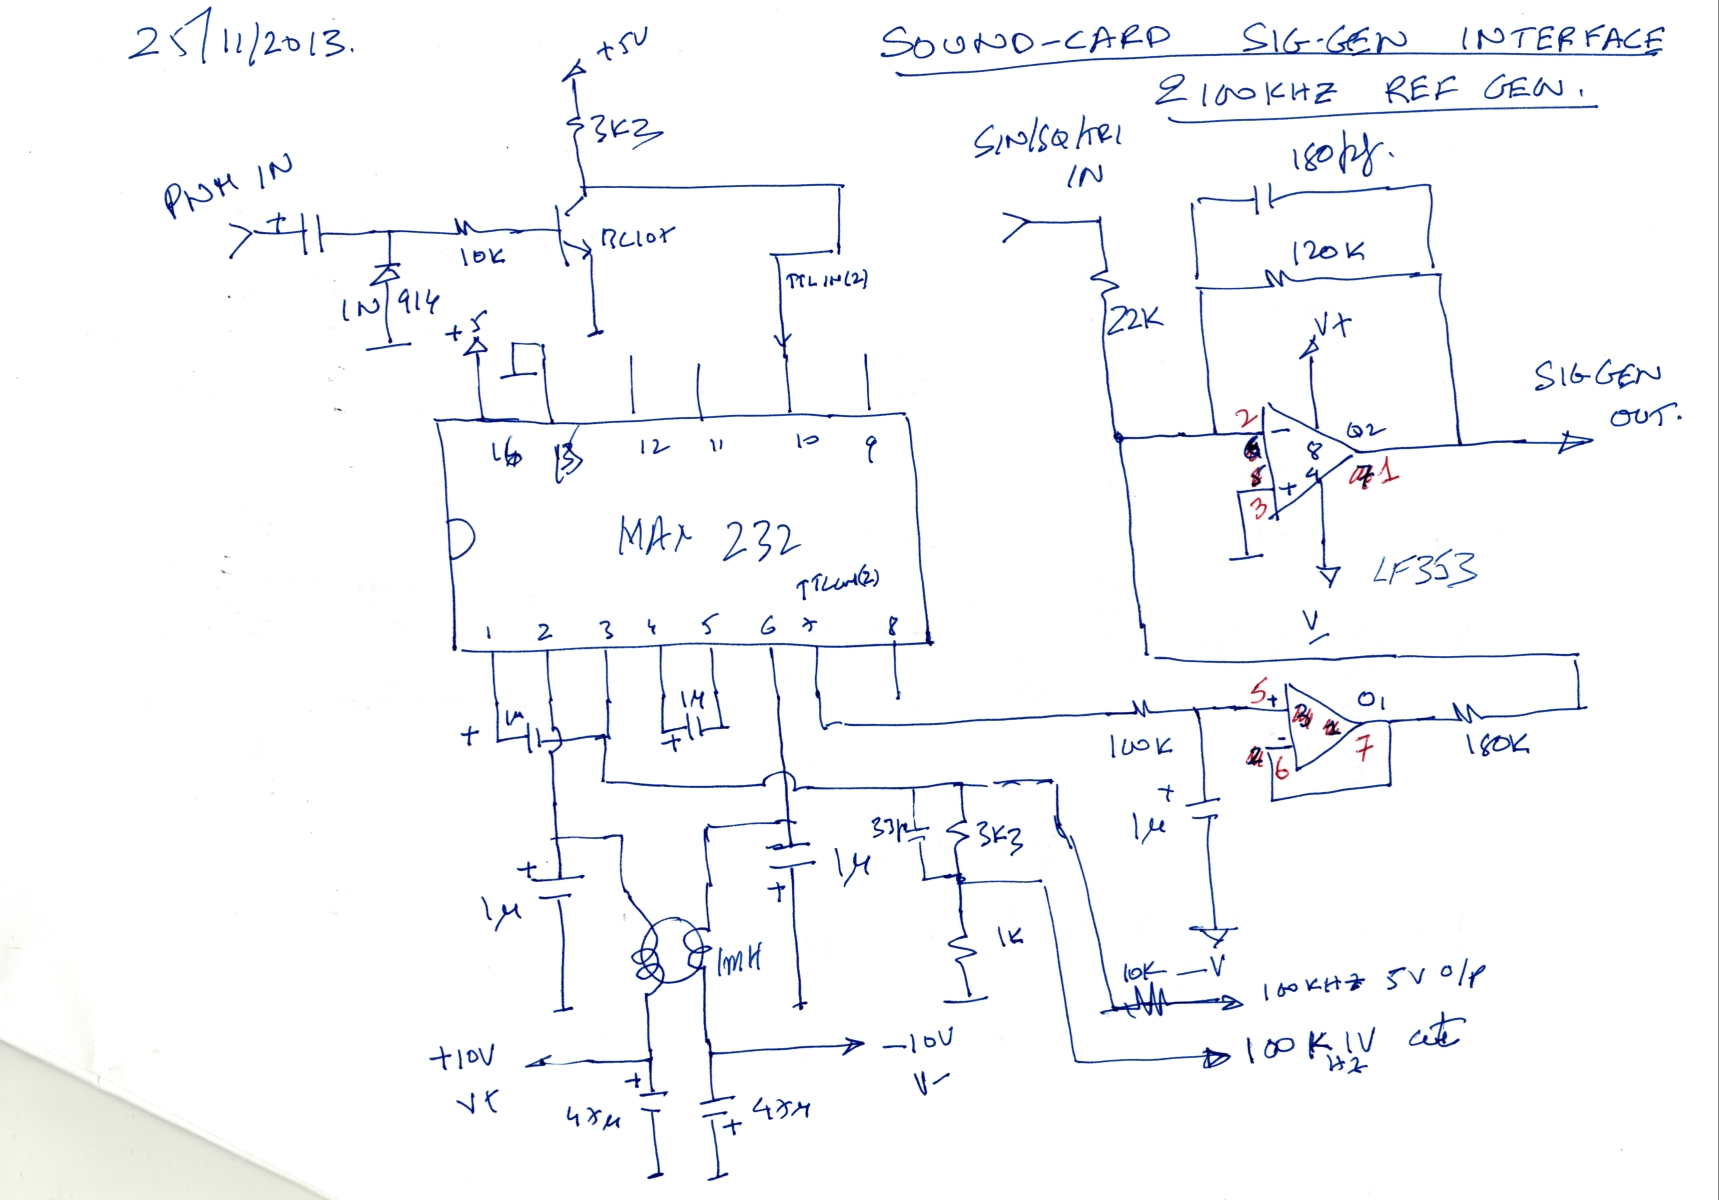 25/11/2013.
SOUND-CARD SIG-GEN INTERFACE
& 100KHZ REF GEN.
+5V
3K3
PWM IN
+
10K
BC107
1N914
TTL IN(2)
SIN/SQ/TRI
IN
180pf.
120K
22K
V+
SIG GEN
OUT.
2
-
8
O2
+
4
1
3
LF353
V-
+5
16
15
12
11
10
9
MAX 232
TTL out(2)
1
2
3
4
5
6
7
8
+
1µ
1µ
+
100K
5
+
O1
-
6
7
180K
+
1µ
-V
33p
3K3
1K
+
1µ
1µ
+
1mH
10K
100KHZ 5V o/p
100K HZ 1V
+10V
V+
-10V
V-
+
47µ
47µ
+